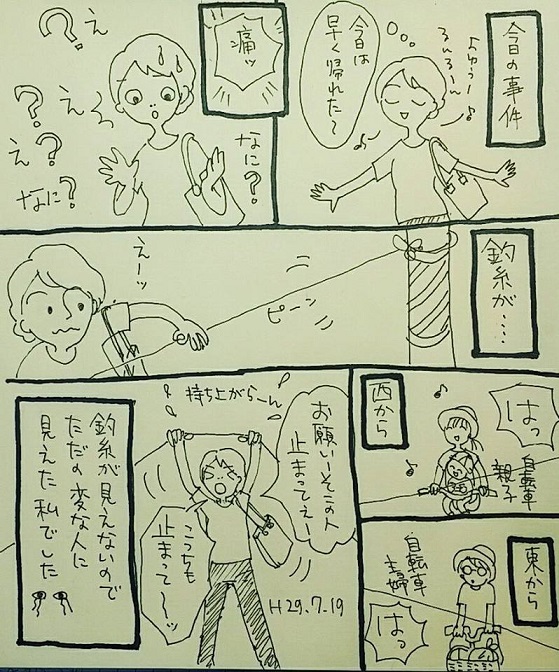 今日の事件
よゆうー♪
るんるーん
今日は
早く帰れた〜
痛ッ
え
?
え
?
え
?
なに?
なに?
釣糸が…
ピーン
えーッ
西から
はっ
自転車
親子
東から
はっ
自転車
主婦
お願いーそこの人
止まってぇ
持ち上がらーん
こっちも
止まって〜ッ
H29.7.19
釣糸が見えないので
ただの変な人に
見えた私でした